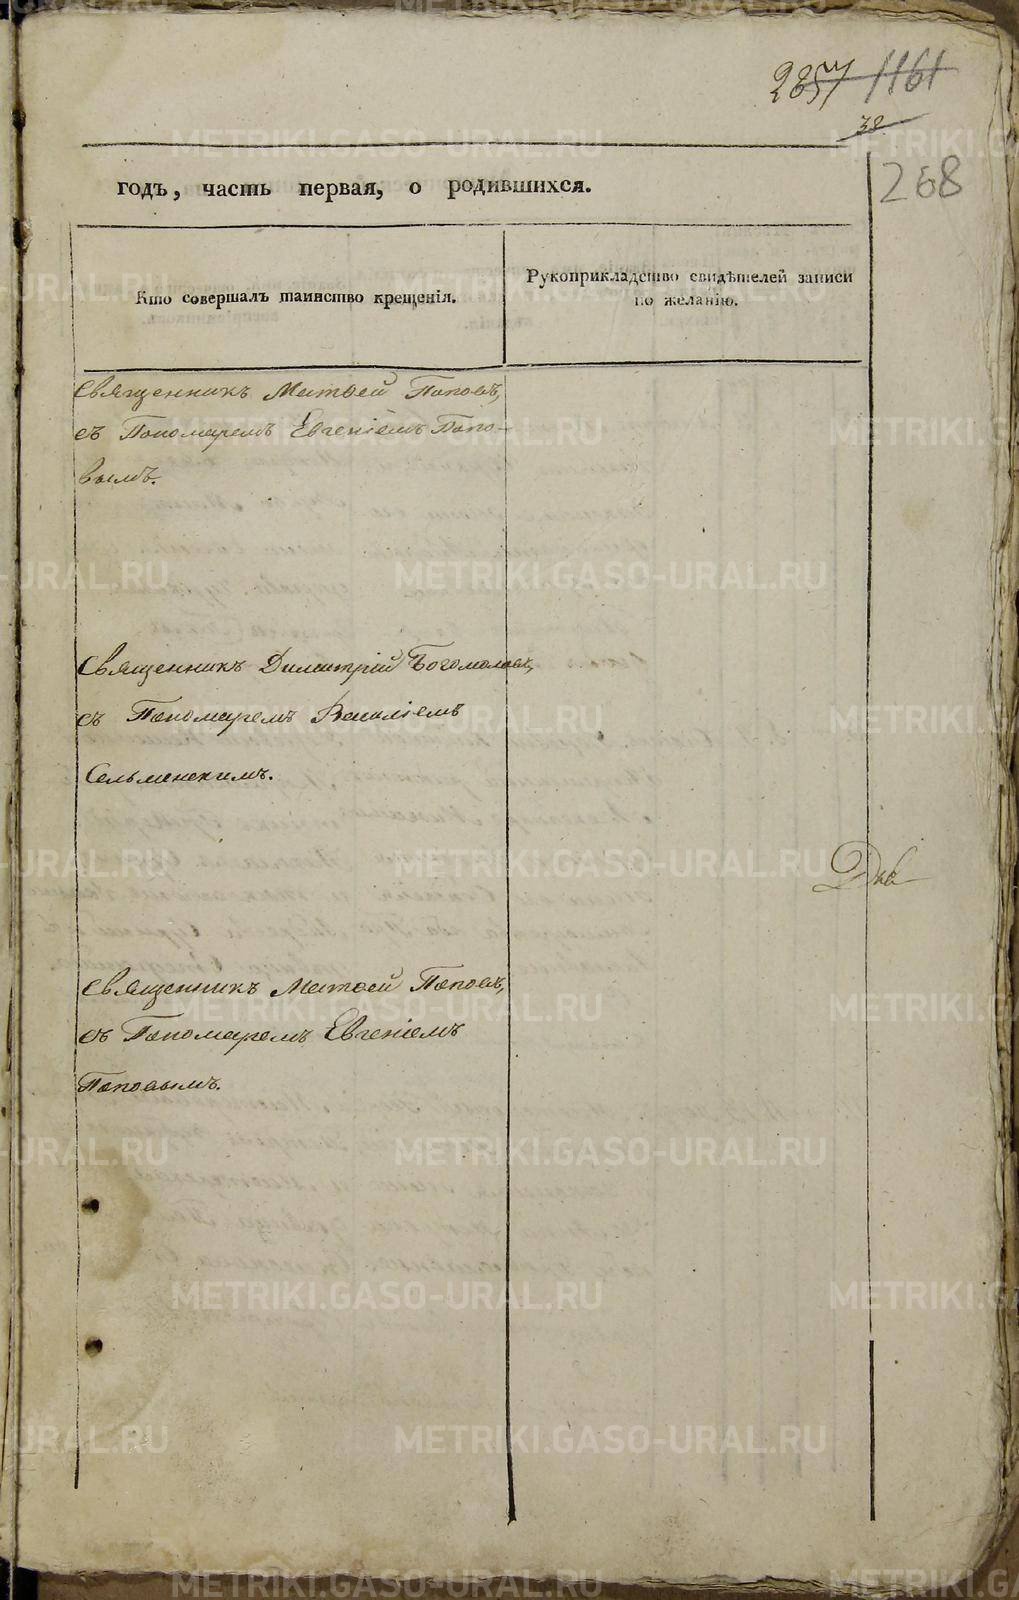 2857 1161
38
268
годъ, часть первая, о родившихся.
Кто совершалъ таинство крещенія.
Рукоприкладство свидѣтелей записи
по желанію.
Священникъ Матѳей Поповъ,
съ Пономаремъ Евгеніемъ Попо-
вымъ.
Священникъ Димитрій Богомоловъ,
съ Пономаремъ Василіемъ
Сельменскимъ.
Священникъ Матѳей Поповъ,
съ Пономаремъ Евгеніемъ
Поповымъ.
METRIKI.GASO-URAL.RU